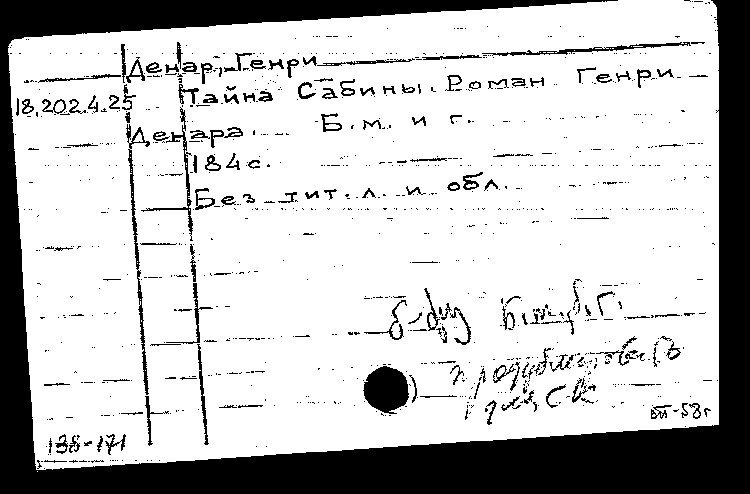 Денар, Генри
18.202.4.25 Тайна Сабины. Роман Генри
Денара. Б.м. и г.
184 с.
Без тит. л. и обл.
Б.м., б.г.
для
138-171
VII-53г